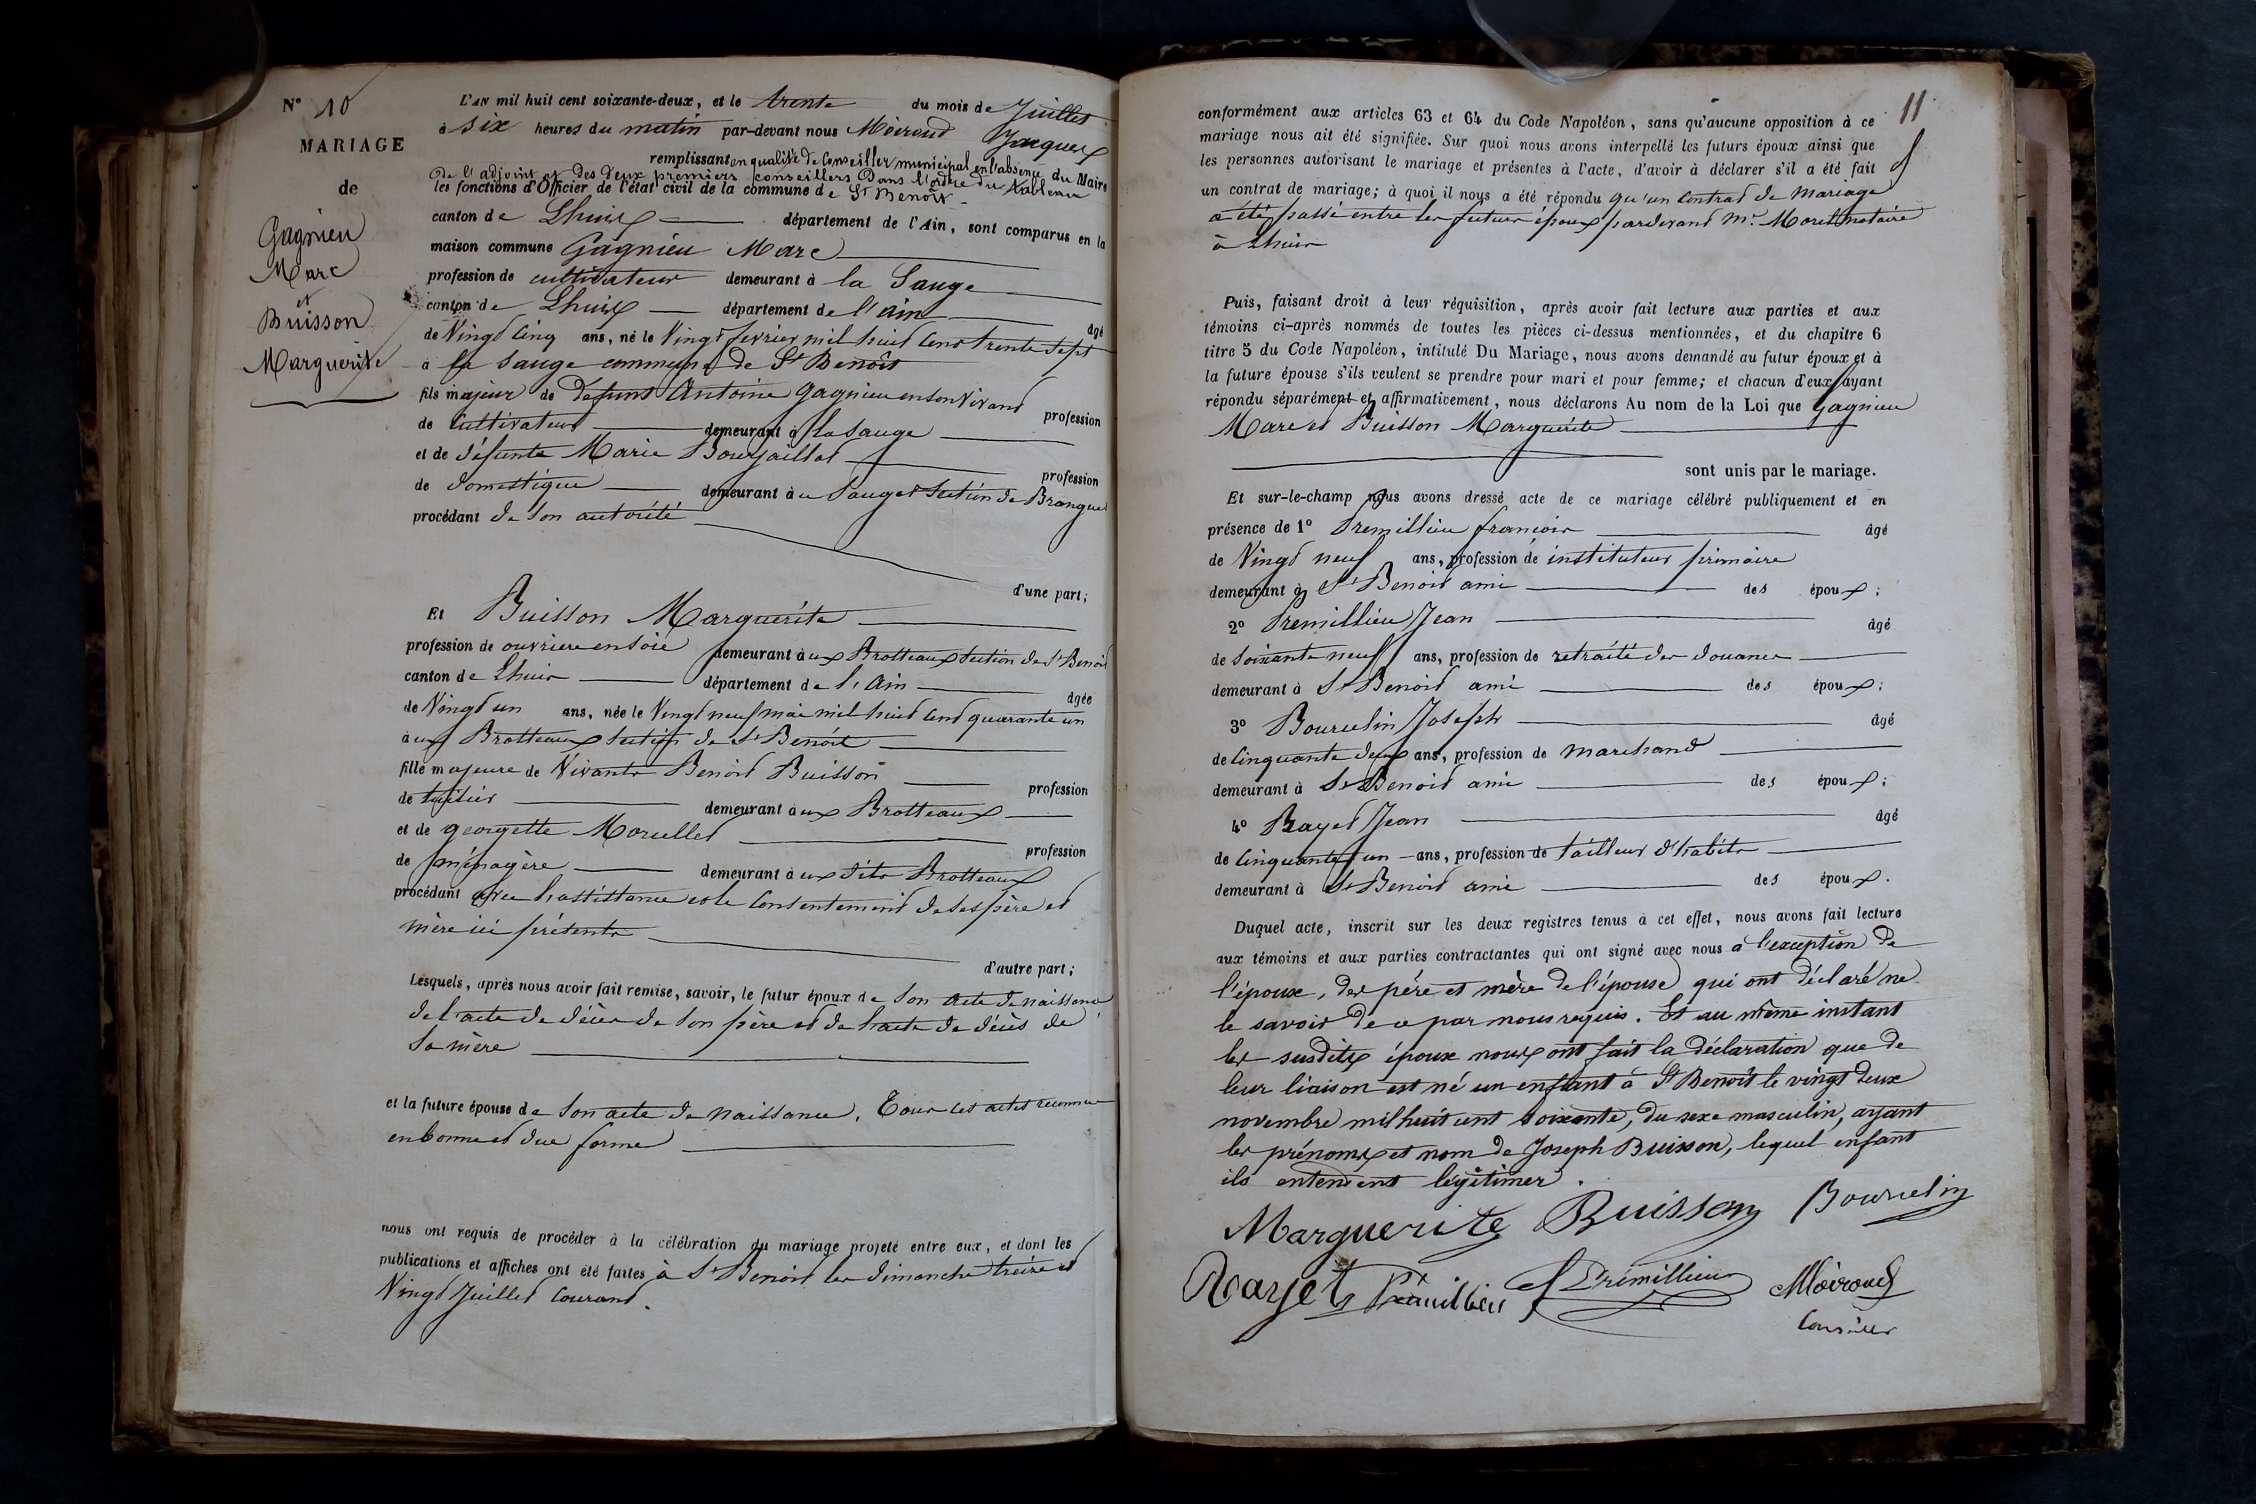 N° 10
MARIAGE
de
Gagnieu
Marc
et
Buisson
Marguerite
L'AN mil huit cent soixante-deux, et le trente du mois de Juillet
à six heures du matin par-devant nous Moiroud Jacques
remplissant en qualité de Conseiller municipal en l'absence du Maire
De l'adjoint et des deux premiers conseillers Dans l'ordre du tableau
les fonctions d'Officier de l'état civil de la commune de St Benoît
canton de Lhuis département de l'Ain, sont comparus en la
maison commune Gagnieu Marc
profession de cultivateur demeurant à la Sauge
canton de Lhuis département de l'ain
de Vingt Cinq ans, né le Vingt fevrier mil huit Cent trente sept âgé
à la Sauge commune de St Benoît
fils majeur de defunt Antoine Gagnieu en son Vivant profession
de Cultivateur demeurant à la Sauge
et de défunte Marie Bourjaillat profession
de domestique demeurant au Sauget Section de Brangues
procédant de Son autorité
d'une part;
Et Buisson Marguerite
profession de ouvriere en soie demeurant aux Brotteaux Section de St Benoit
canton de Lhuis département de l'Ain âgée
de Vingt un ans, née le Vingt neuf mai mil huit Cent quarante un
aux Brotteaux Section de St Benoit
fille majeure de Vivants Benoit Buisson profession
de tuilier demeurant aux Brotteaux
et de georgette Morellet profession
de ménagère demeurant aux dits Brotteaux
procédant avec l'assistance et le Consentement de Ses père et
mère ici présents
d'autre part;
Lesquels, après nous avoir fait remise, savoir, le futur époux de Son acte de naissance
de l'acte de décès de Son père et de l'acte de décès de
Sa mère
et la future épouse de Son acte de naissance. Tous ces actes reconnus
en bonne et due forme
nous ont requis de procéder à la célébration du mariage projeté entre eux, et dont les
publications et affiches ont été faites à St Benoit les dimanches treize et
Vingt Juillet Courant.
11
conformément aux articles 63 et 64 du Code Napoléon, sans qu'aucune opposition à ce
mariage nous ait été signifiée. Sur quoi nous avons interpellé les futurs époux ainsi que
les personnes autorisant le mariage et présentes à l'acte, d'avoir à déclarer s'il a été fait
un contrat de mariage; à quoi il nous a été répondu qu'un Contrat de Mariage
a été passé entre les futurs époux pardevant Mr. Morel notaire
à Lhuis
Puis, faisant droit à leur réquisition, après avoir fait lecture aux parties et aux
témoins ci-après nommés de toutes les pièces ci-dessus mentionnées, et du chapitre 6
titre 5 du Code Napoléon, intitulé Du Mariage, nous avons demandé au futur époux et à
la future épouse s'ils veulent se prendre pour mari et pour femme; et chacun d'eux ayant
répondu séparément et affirmativement, nous déclarons Au nom de la Loi que Gagnieu
Marc et Buisson Marguerite
sont unis par le mariage.
Et sur-le-champ nous avons dressé acte de ce mariage célébré publiquement et en
présence de 1° Premillieu françois âgé
de Vingt neuf ans, profession de instituteur primaire
demeurant à St Benoit ami des époux;
2° Premillieu Jean âgé
de Soixante neuf ans, profession de retraité des douanes
demeurant à St Benoit ami des époux;
3° Bourcelin Joseph âgé
de Cinquante deux ans, profession de marchand
demeurant à St Benoit ami des époux;
4° Rayet Jean âgé
de Cinquante un ans, profession de tailleur d'habits
demeurant à St Benoit ami des époux.
Duquel acte, inscrit sur les deux registres tenus à cet effet, nous avons fait lecture
aux témoins et aux parties contractantes qui ont signé avec nous à l'exception de
l'époux, des père et mère de l'épouse qui ont déclaré ne
le savoir de ce par nous requis. Et au même instant
les susdits époux nous ont fait la déclaration que de
leur liaison est né un enfant à St Benoît le vingt deux
novembre mil huit cent soixante, du sexe masculin, ayant
les prénoms et nom de Joseph Buisson, lequel enfant
ils entendent légitimer.
Marguerite Buisson Bourcelin
Rayet Prémillieu f Prémillieu Moiroud
Conseiller